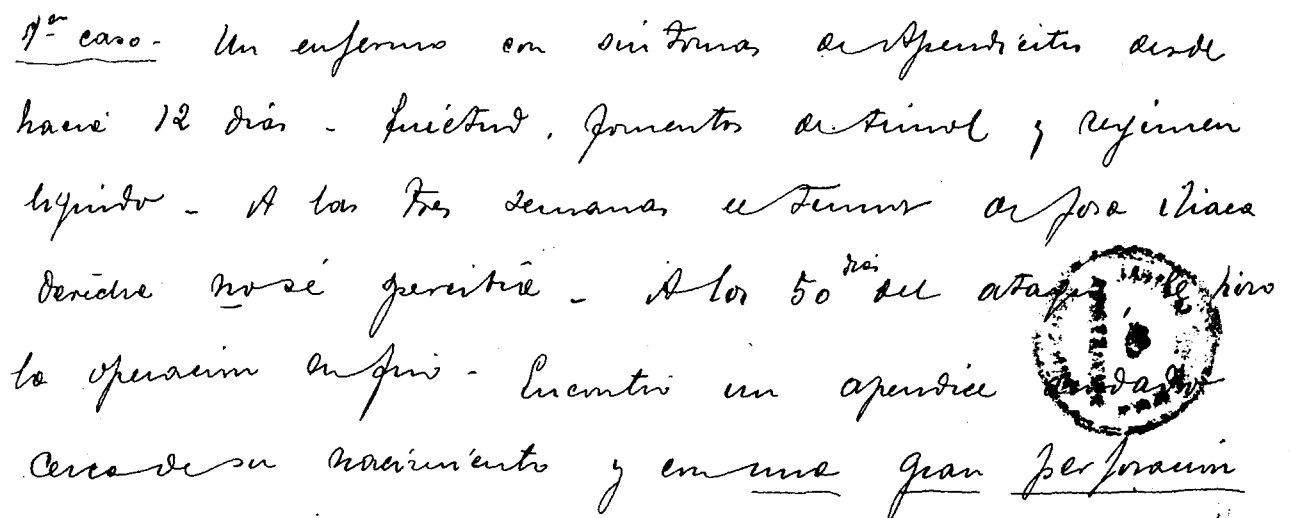 1er caso - Un enfermo con sintomas de Apendicitis desde
hacia 12 dias - Quietud, fomentos de timol y regimen
liquido - A las tres semanas el tumor de fosa iliaca
derecha no sé percibia - A los 50 dias del ataque le hizo
la operacion en frio - Encontró un apendice
cerca de su nacimiento y con una gran perforación